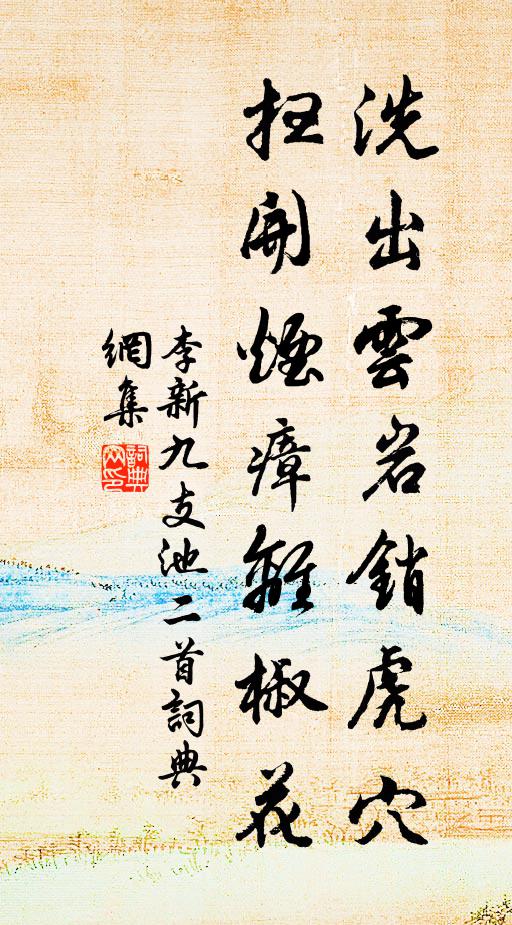 洗出雲岩銷虎穴
扭開煙瘴離椒花
李新九支池二首詞典
網集
詞典
网印